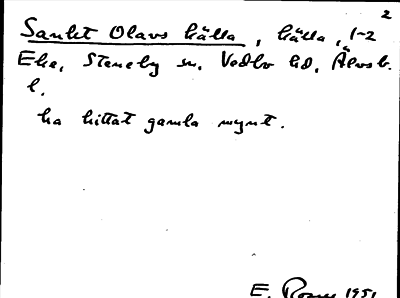 2
Sankt Olavs källa, källa, 1-2
Eke, Steneby sn, Vedbo hd, Älvsb.
l.
ha hittat gamla mynt.
E. 1951